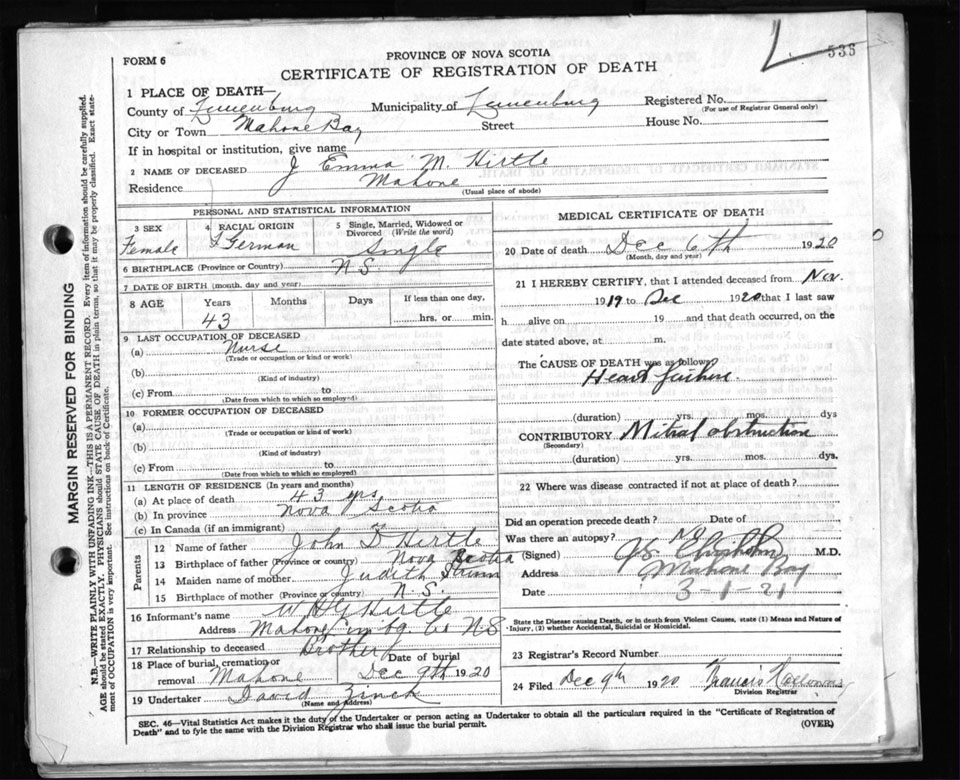 535
FORM 6
PROVINCE OF NOVA SCOTIA
CERTIFICATE OF REGISTRATION OF DEATH
1 PLACE OF DEATH—
County of Lunenburg Municipality of Lunenburg Registered No.
(For use of Registrar General only)
City or Town Mahone Bay Street House No.
If in hospital or institution, give name
2 NAME OF DECEASED J Emma M. Hirtle
Residence Mahone
(Usual place of abode)
PERSONAL AND STATISTICAL INFORMATION
3 SEX 4 RACIAL ORIGIN 5 Single, Married, Widowed or Divorced (Write the word)
Female German Single
6 BIRTHPLACE (Province or Country) N.S.
7 DATE OF BIRTH (month, day and year)
8 AGE Years Months Days If less than one day,
43 hrs. or min.
9 LAST OCCUPATION OF DECEASED
(a) Nurse
(Trade or occupation or kind of work)
(b)
(Kind of industry)
(c) From to
(Date from which to which so employed)
10 FORMER OCCUPATION OF DECEASED
(a)
(Trade or occupation or kind of work)
(b)
(Kind of industry)
(c) From to
(Date from which to which so employed)
11 LENGTH OF RESIDENCE (In years and months)
(a) At place of death 43 yrs
(b) In province Nova Scotia
(c) In Canada (if an immigrant)
Parents
12 Name of father John D Hirtle
13 Birthplace of father (Province or country) Nova Scotia
14 Maiden name of mother Judith
15 Birthplace of mother (Province or country) N.S.
16 Informant's name W H G Hirtle
Address Mahone Lunbg. Co NS
17 Relationship to deceased Brother
18 Place of burial, cremation or removal Mahone Date of burial Dec 9th 1920
19 Undertaker David Zinck
(Name and Address)
MEDICAL CERTIFICATE OF DEATH
20 Date of death Dec 6th 1920
(Month, day and year)
21 I HEREBY CERTIFY, that I attended deceased from Nov.
1919 to Dec 1920 that I last saw
h alive on 19 and that death occurred, on the
date stated above, at m.
The CAUSE OF DEATH was as follows
Heart failure.
(duration) yrs. mos. dys
CONTRIBUTORY Mitral obstruction
(Secondary)
(duration) yrs. mos. dys.
22 Where was disease contracted if not at place of death?
Did an operation precede death? Date of
Was there an autopsy? No
(Signed) Chisholm M.D.
Address Mahone Bay
Date 3-1-21
State the Disease causing Death, or in death from Violent Causes, state (1) Means and Nature of
Injury, (2) whether Accidental, Suicidal or Homicidal.
23 Registrar's Record Number
24 Filed Dec 9th 1920 Francis
Division Registrar
SEC. 46—Vital Statistics Act makes it the duty of the Undertaker or person acting as Undertaker to obtain all the particulars required in the "Certificate of Registration of
Death" and to fyle the same with the Division Registrar who shall issue the burial permit. (OVER)
MARGIN RESERVED FOR BINDING
N.B.—WRITE PLAINLY WITH UNFADING INK—THIS IS A PERMANENT RECORD. Every item of information should be carefully supplied.
AGE should be stated EXACTLY. PHYSICIANS should STATE CAUSE OF DEATH in plain terms, so that it may be properly classified. Exact state-
ment of OCCUPATION is very important. See instructions on back of Certificate.